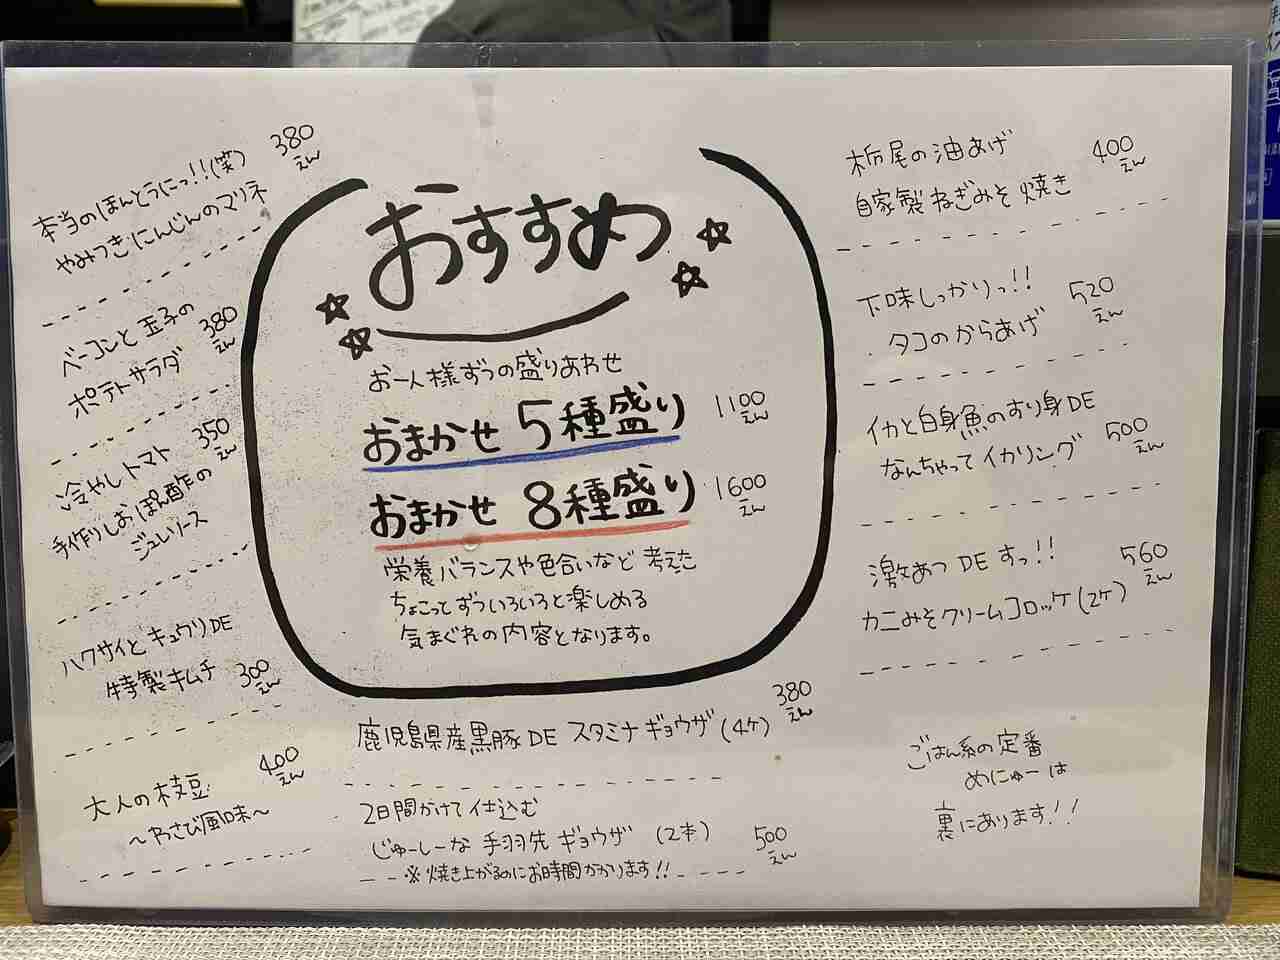 本当のほんとうにっ!!(笑)
やみつきにんじんのマリネ
380
えん
ベーコンと玉子の
ポテトサラダ
380
えん
冷やしトマト
350
えん
手作りしおぽん酢の
ジュレソース
ハクサイとキュウリDE
特製キムチ
300
えん
大人の枝豆
〜わさび風味〜
400
えん
おすすめ
お一人様ずつの盛りあわせ
おまかせ 5種盛り
1100
えん
おまかせ 8種盛り
1600
えん
栄養バランスや色合いなど考えた
ちょこっとずついろいろと楽しめる
気まぐれの内容となります。
鹿児島県産黒豚DE スタミナギョウザ(4ケ)
380
えん
2日間かけて仕込む
じゅーしーな 手羽先 ギョウザ (2本)
500
えん
※焼き上がるのにお時間かかります!!
栃尾の油あげ
自家製ねぎみそ焼き
400
えん
下味しっかりっ!!
タコのからあげ
520
えん
イカと白身魚のすり身DE
なんちゃってイカリング
500
えん
激あつDEすっ!!
カニみそクリームコロッケ(2ケ)
560
えん
ごはん系の定番
めにゅーは
裏にあります!!